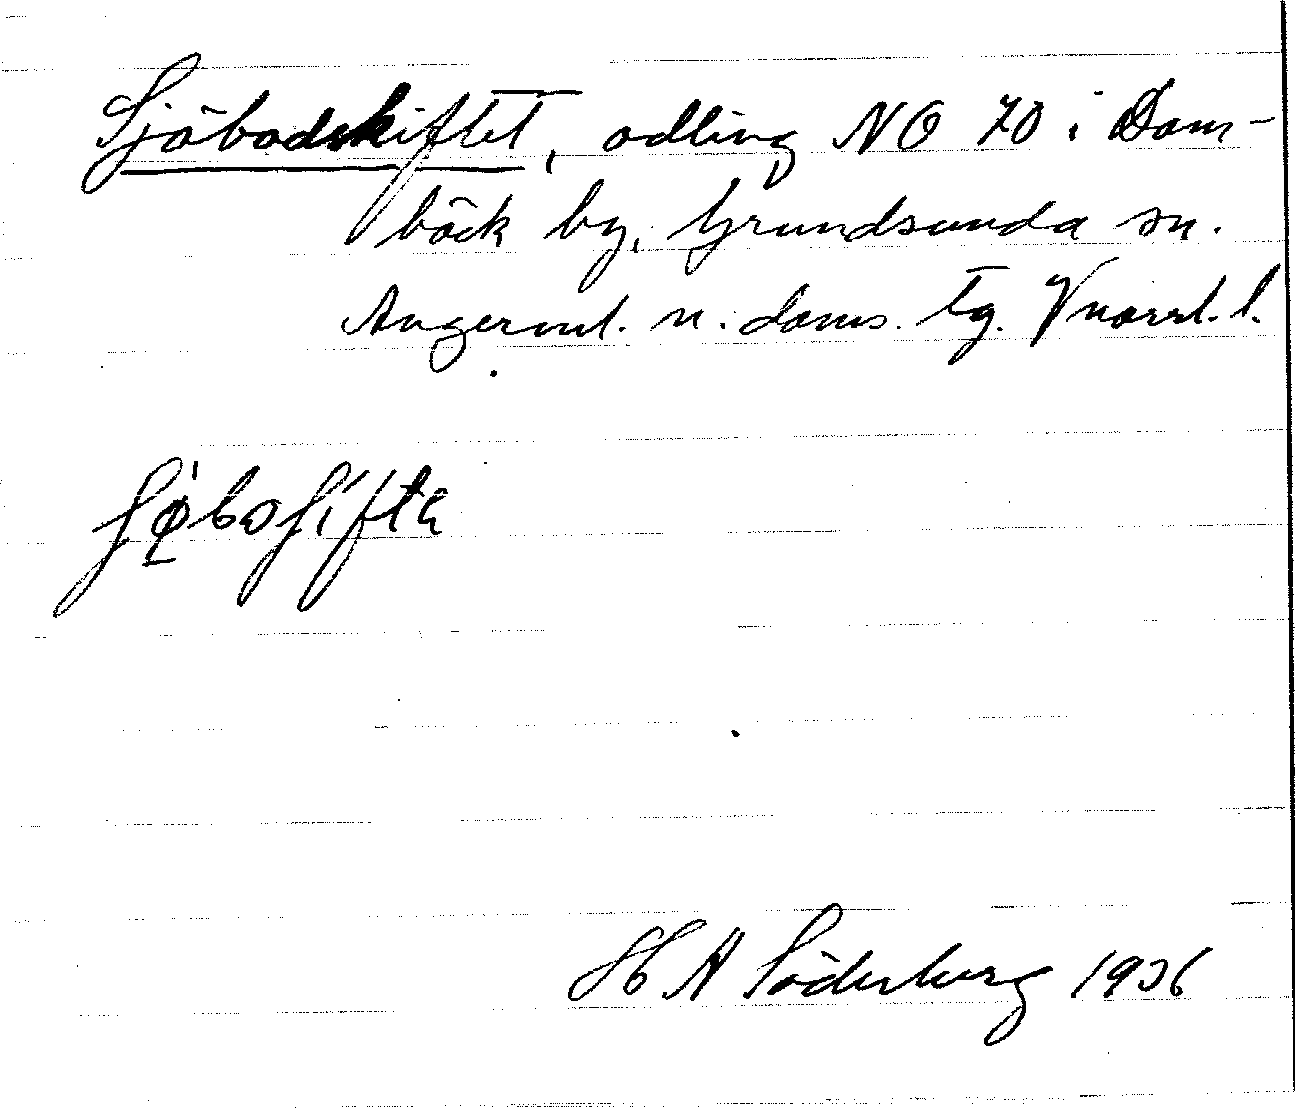 Sjöbodskiftet, odling NO 70 i Dom-
bäck by, Grundsunda sn.
Ångerml. n. doms. tg. Vnorrl. l.
H A Söderberg 1936